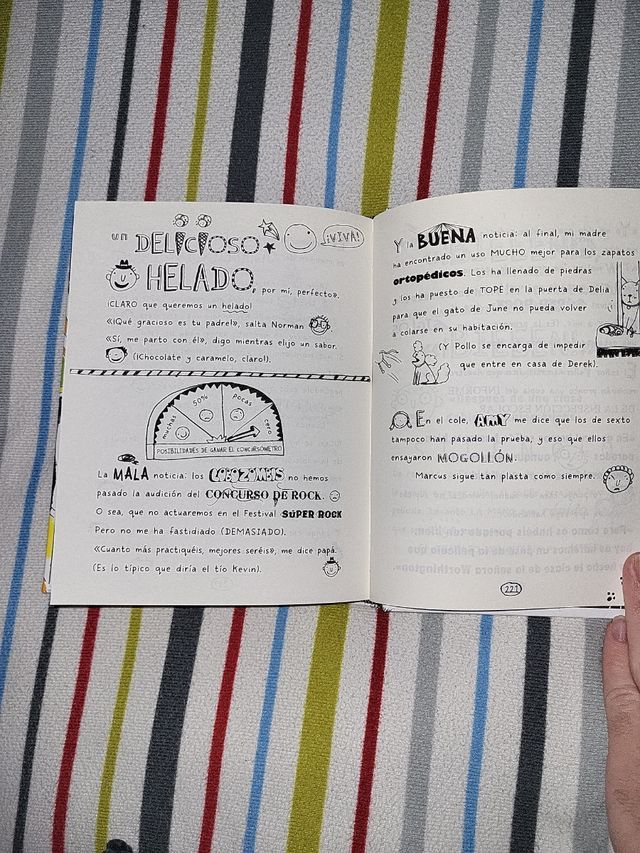 un DELICIOSO ¡VIVA!
HELADO, por mí, perfecto».
¡CLARO que queremos un helado!
«¡Qué gracioso es tu padre!», salta Norman
«Sí, me parto con él», digo mientras elijo un sabor.
(¡Chocolate y caramelo, claro!).
muchas 50% pocas cero
POSIBILIDADES DE GANAR EL CONCURSÓMETRO
La MALA noticia: los LOBOZOMBIS no hemos
pasado la audición del CONCURSO DE ROCK.
O sea, que no actuaremos en el Festival SÚPER ROCK
Pero no me ha fastidiado (DEMASIADO).
«Cuanto más practiquéis, mejores seréis», me dice papá.
(Es lo típico que diría el tío Kevin).
Y la BUENA noticia: al final, mi madre
ha encontrado un uso MUCHO mejor para los zapatos
ortopédicos. Los ha llenado de piedras
y los ha puesto de TOPE en la puerta de Delia
para que el gato de June no pueda volver
a colarse en su habitación.
(Y Pollo se encarga de impedir
que entre en casa de Derek).
En el cole, AMY me dice que los de sexto
tampoco han pasado la prueba, y eso que ellos
ensayaron MOGOLLÓN.
Marcus sigue tan plasta como siempre.
221